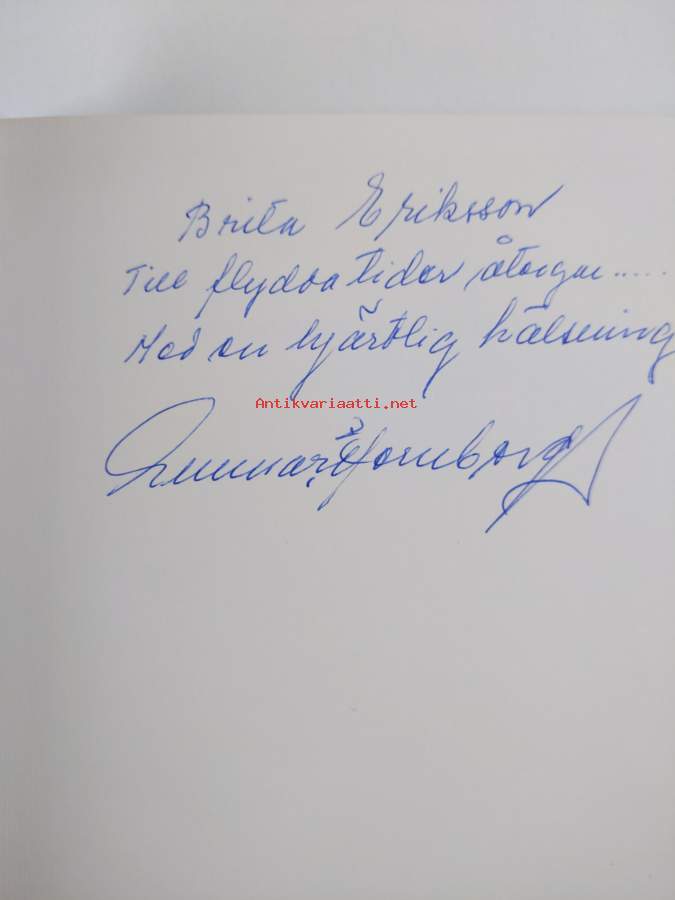 Brita Eriksson
Till flydda tider åter.....
Med en hjärtlig hälsning
Antikvariaatti.net
Gunnar